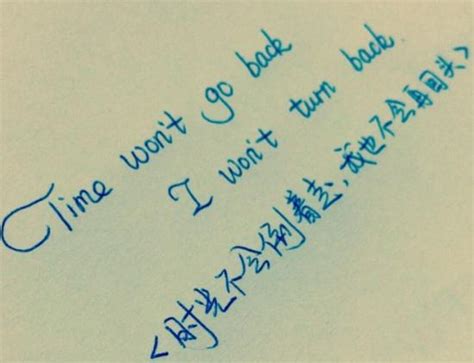 Time won't go back
I won't turn back.
<时光不会倒着走,我也不会再回头>